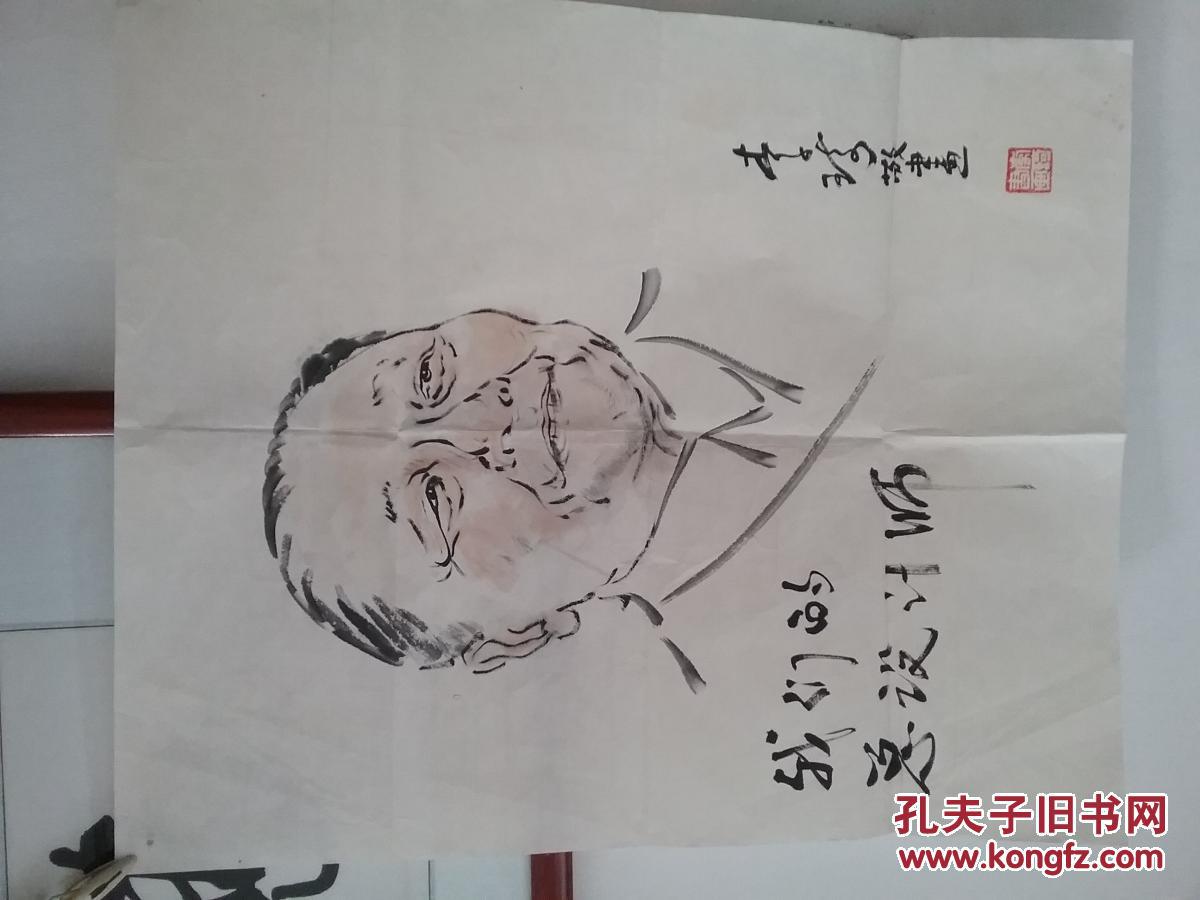 我们的
总设计师
敬画
孔夫子旧书网
www.kongfz.com